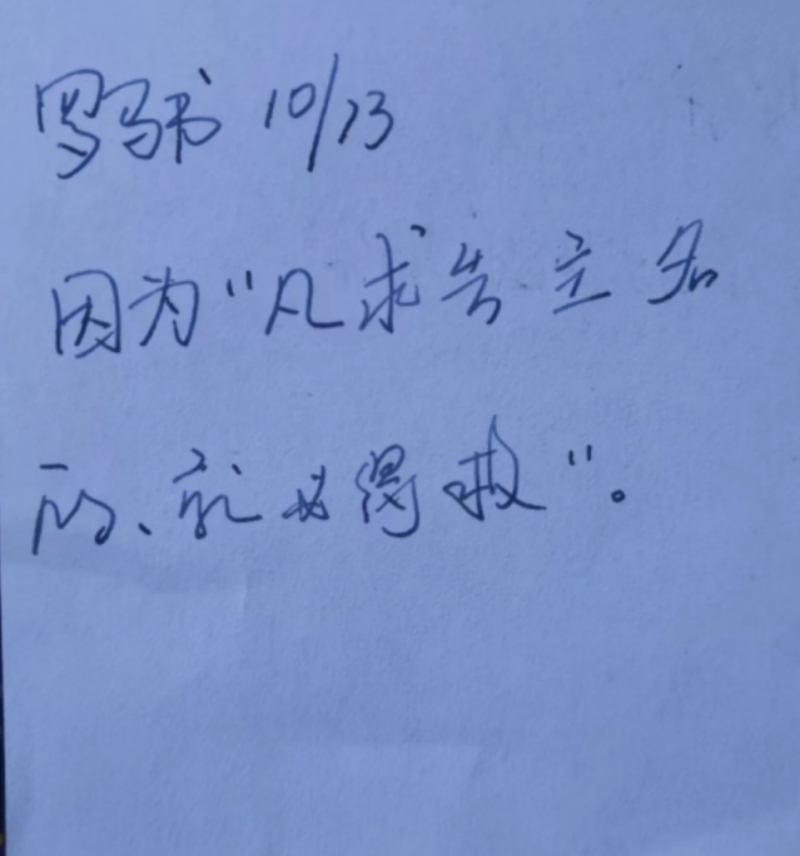 罗马书 10/13
因为“凡求告主名
的、就必得救”。